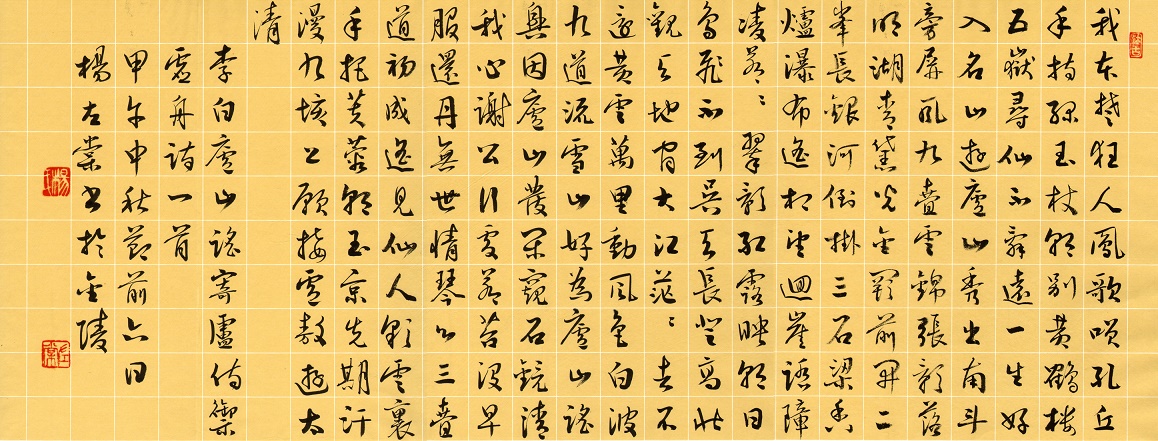 我本楚狂人鳳歌咲孔丘
手持綠玉杖朝別黃鶴樓
五嶽尋仙不辭遠一生好
入名山遊廬山秀出南斗
旁屏風九疊雲錦張影落
明湖青黛光金闕前開二
峯長銀河倒掛三石梁香
爐瀑布遙相望迴崖沓障
凌蒼〻翠影紅霞映朝日
鳥飛不到吳天長登高壯
觀天地間大江茫〻去不
還黃雲萬里動風色白波
九道流雪山好為廬山謠
興因廬山發閑窺石鏡清
我心謝公行處蒼苔沒早
服還丹無世情琴心三疊
道初成遙見仙人彩雲裏
手把芙蓉朝玉京先期汗
漫九垓上願接盧敖遊太
清
李白廬山謠寄盧侍御
虛舟詩一首
甲午中秋節前六日
楊左棠書於金陵